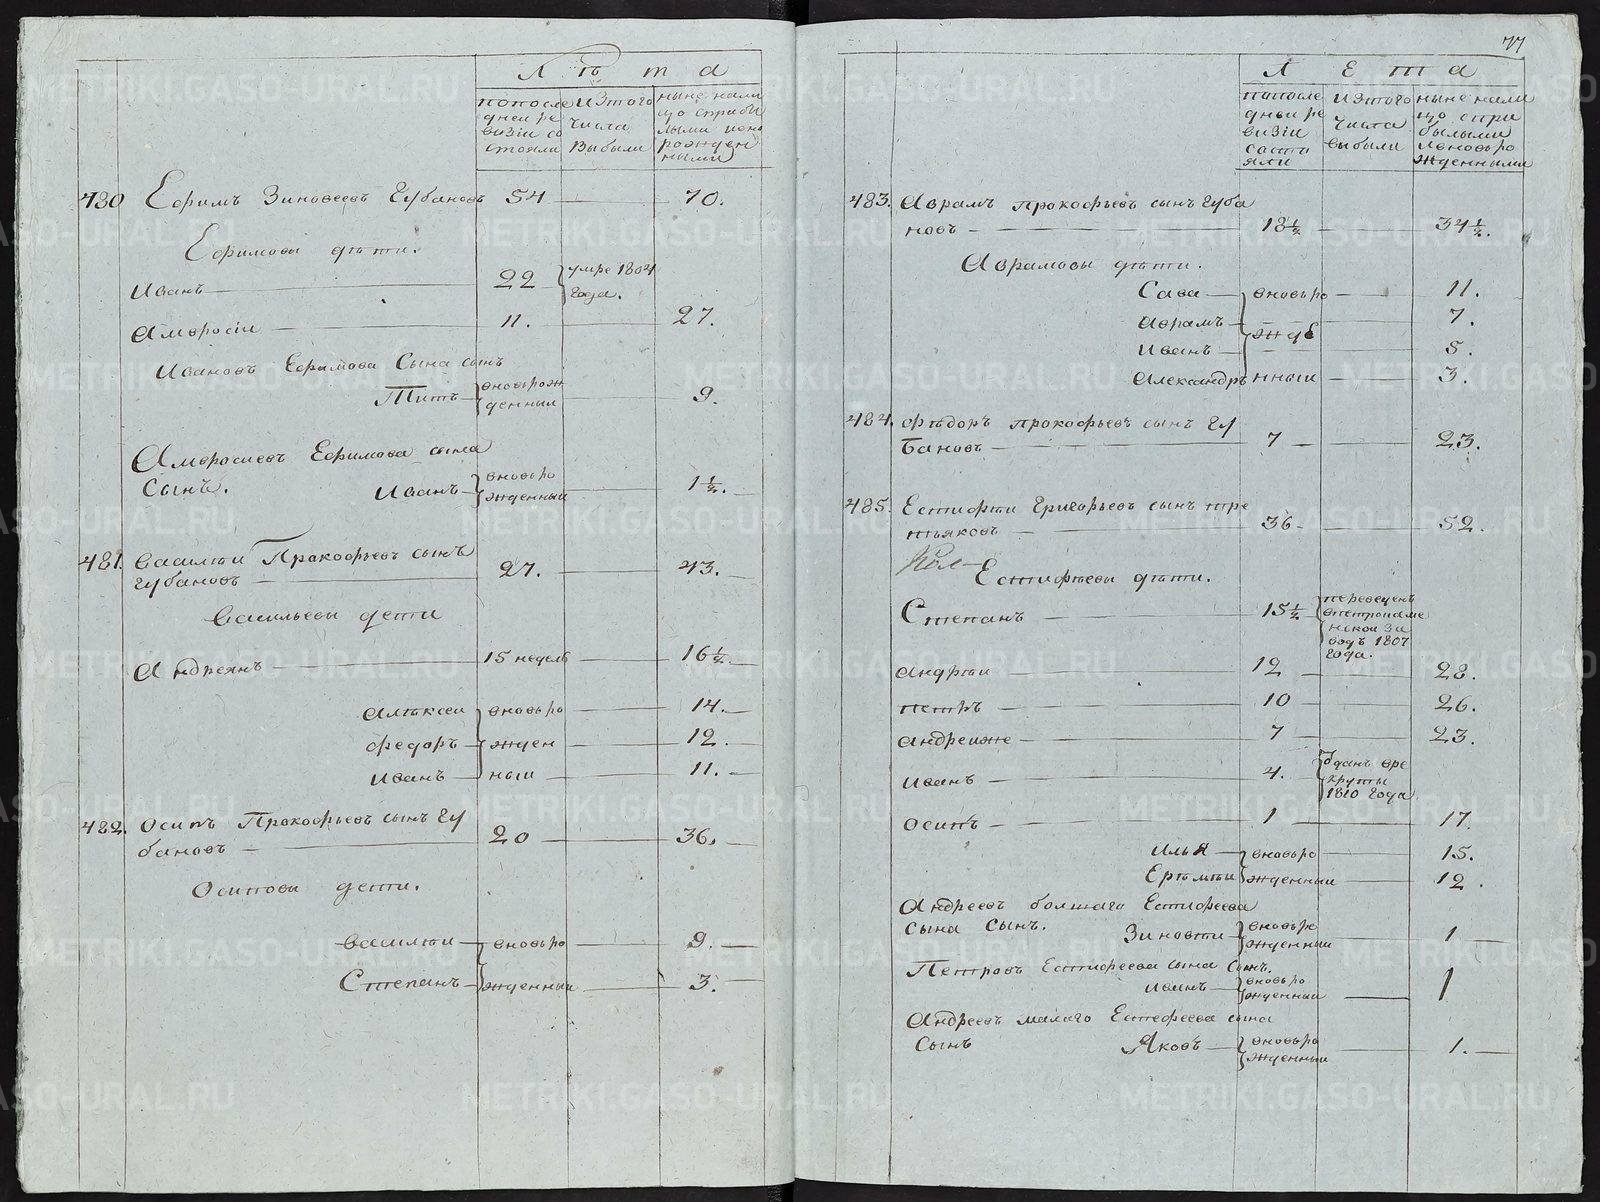 Лѣта
по после дней ре визіи со стояли
изъ того числа выбыли
ныне нали цо с прибы лыми и но рожден ными
480 Ефимъ Зиновеевъ Губановъ 54 70.
Ефимовы дѣти.
Иванъ 22 умре 1804 года.
Амвросіи 11. 27.
Ивановъ Ефимова сына сынъ
Титъ вновь рож денныи 9.
Амвросиевъ Ефимова сына
сынъ. Иванъ вновь ро жденныи 1½.
481. Василѣи Прокофьевъ сынъ
Губановъ 27. 43.
Васильевы дети
Андреянъ 15 недель 16½.
Алѣксеи вновь ро 14.
Федоръ жден 12.
Иванъ ныи 11.
482. Осипъ Прокофьевъ сынъ Гу
бановъ 20 36.
Осиповы дети.
Василѣи вновь ро 9.
Степанъ жденныи 3.
77
Лета
по после дней ре визіи состо яли
изъ того числа выбыли
ныне нали цо с при былыми и вновь ро жденными
483. Аврамъ Прокофьевъ сынъ Губа
новъ 18½ 34½.
Аврамовы дѣти.
Сава вновь ро 11.
Аврамъ жде 7.
Иванъ 5.
Александръ нныи 3.
484. Фѣдоръ Прокофьевъ сынъ Гу
бановъ 7 23.
485. Естифѣи Григорьевъ сынъ Тре
тьяковъ 36 52.
Естифѣевы дѣти.
Степанъ 15½ переведенъ в петрокаме нской за водъ 1807 года.
Андрѣи 12 28.
Петръ 10 26.
Андреи же 7 23.
Иванъ 4. Зданъ в ре круты 1810 года
Осипъ 1 17.
Илья вновь ро 15.
Ерѣмѣи жденныи 12.
Андреевъ большаго Естифеева
сына сынъ. Зиновѣи вновь ро жденныи 1
Петровъ Естифеева сына сынъ.
Иванъ вновь ро жденныи 1
Андреевъ малаго Естефеева сына
сынъ Яковъ вновь ро жденныи 1.
METRIKI.GASO-URAL.RU